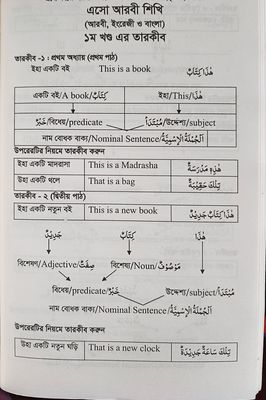 এসো আরবী শিখি
(আরবী, ইংরেজী ও বাংলা)
১ম খণ্ড এর তারকীব
তারকীব -১ : প্রথম অধ্যায় (প্রথম পাঠ)
ইহা একটি বই This is a book هٰذَا كِتَابٌ
একটি বই/A book/كِتَابٌ ইহা/This/هٰذَا
বিধেয়/predicate/خَبَرٌ উদ্দেশ্য/subject/مُبْتَدَأٌ
নাম বোধক বাক্য/Nominal Sentence/اَلْجُمْلَةُ الْإِسْمِيَّةُ
উপরেরটির নিয়মে তারকীব করুন
ইহা একটি মাদরাসা This is a Madrasha هٰذِهِ مَدْرَسَةٌ
উহা একটি থলে That is a bag تِلْكَ حَقِيْبَةٌ
তারকীব - ২ (দ্বিতীয় পাঠ)
ইহা একটি নতুন বই This is a new book هٰذَا كِتَابٌ جَدِيْدٌ
جَدِيْدٌ كِتَابٌ هٰذَا
বিশেষণ/Adjective/صِفَتٌ বিশেষ্য/Noun/مَوْصُوْفٌ
বিধেয়/predicate/خَبَرٌ উদ্দেশ্য/subject/مُبْتَدَأٌ
নাম বোধক বাক্য/Nominal Sentence/اَلْجُمْلَةُ الْإِسْمِيَّةُ
উপরেরটির নিয়মে তারকীব করুন
উহা একটি নতুন ঘড়ি That is a new clock تِلْكَ سَاعَةٌ جَدِيْدَةٌ